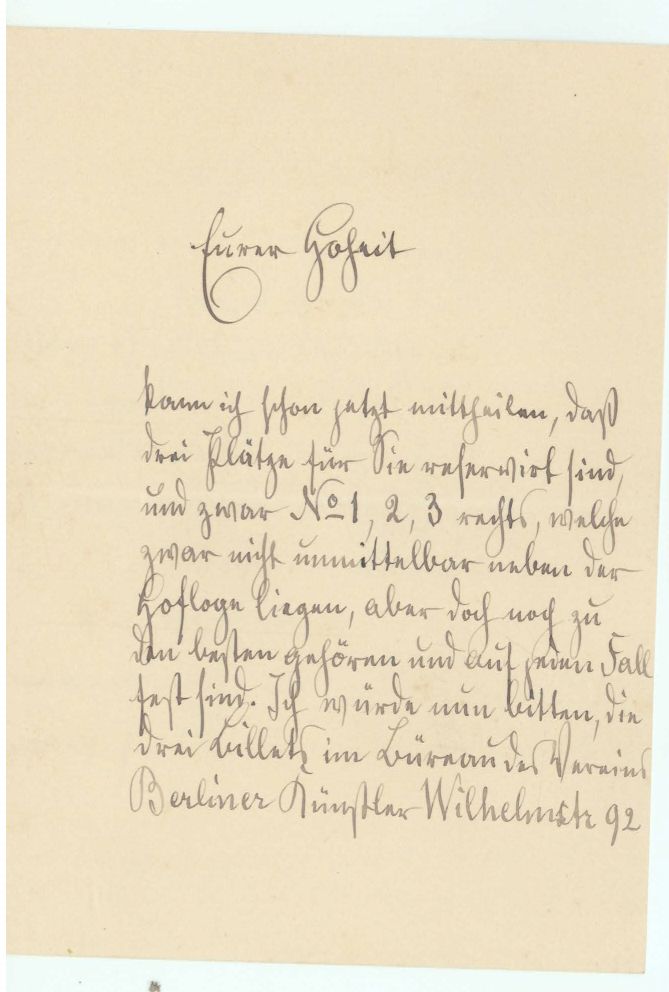 Eurer Hoheit
kann ich schon jetzt mittheilen, daß
drei Plätze für Sie reservirt sind,
und zwar No 1, 2, 3 rechts, welche
zwar nicht unmittelbar neben der
Hofloge liegen, aber doch noch zu
den besten gehören und auf jeden Fall
fest sind. Ich würde nun bitten, die
drei Billets im Büreau des Vereins
Berliner Künstler Wilhelmstr 92